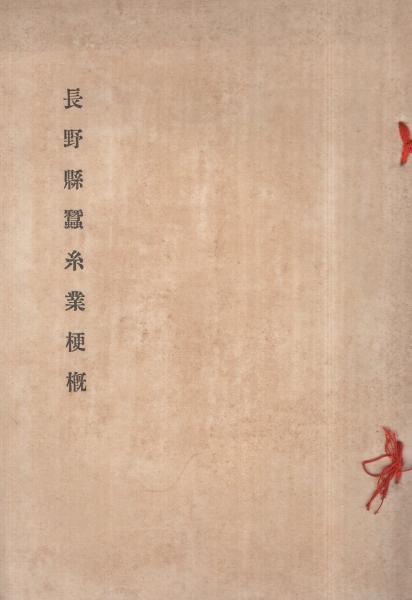 長野縣蠶糸業梗槪